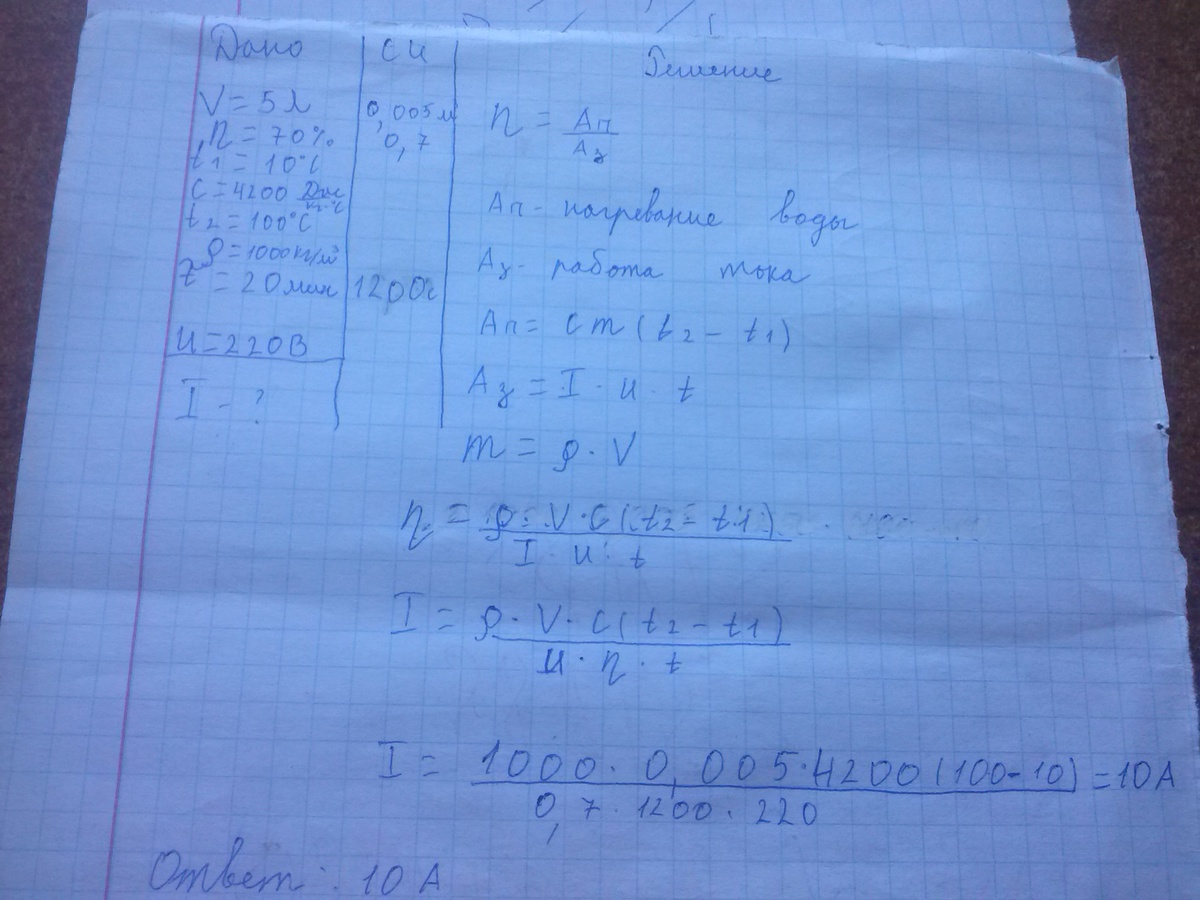 Дано
V = 5 л
η = 70%
t1 = 10°C
C = 4200 Дж/кг·°C
t2 = 100°C
ρ = 1000 кг/м³
t = 20 мин
U = 220 В
I - ?
СИ
0,005 м
0,7
1200 с
Решение
η = Ап/Аз
Ап - нагревание воды
Аз - работа тока
Ап = cm (t2 - t1)
Аз = I · U · t
m = ρ · V
η = ρ · V · C (t2 - t1) / I · U · t
I = ρ · V · C (t2 - t1) / U · η · t
I = 1000 · 0,005 · 4200 (100-10) / 0,7 · 1200 · 220 = 10 А
Ответ: 10 А